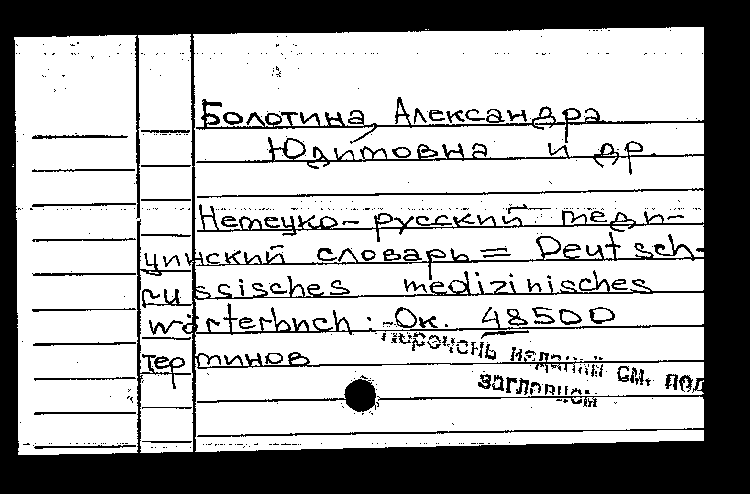 Болотина, Александра
Юдитовна и др.
Немецко-русский меди-
цинский словарь = Deutsch-
russisches medizinisches
wörterbuch: Ок. 48500
терминов
Перечень изданий см. под
заглавием